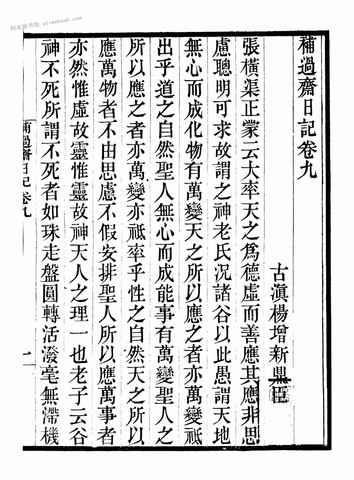 補過齋日記卷九
古滇楊增新鼎臣
張橫渠正蒙云大率天之爲德虛而善應其應非思
慮聰明可求故謂之神老氏況諸谷以此愚謂天地
無心而成化物有萬變天之所以應之者亦萬變祗
出乎道之自然聖人無心而成能事有萬變聖人之
所以應之者亦萬變亦祗率乎性之自然天之所以
應萬物者不由思慮不假安排聖人所以應萬事者
亦然惟虛故靈惟虛故神天人之理一也老子云谷
神不死所謂不死者如珠走盤圓轉活潑毫無滯機
補過齋日記 卷九
一